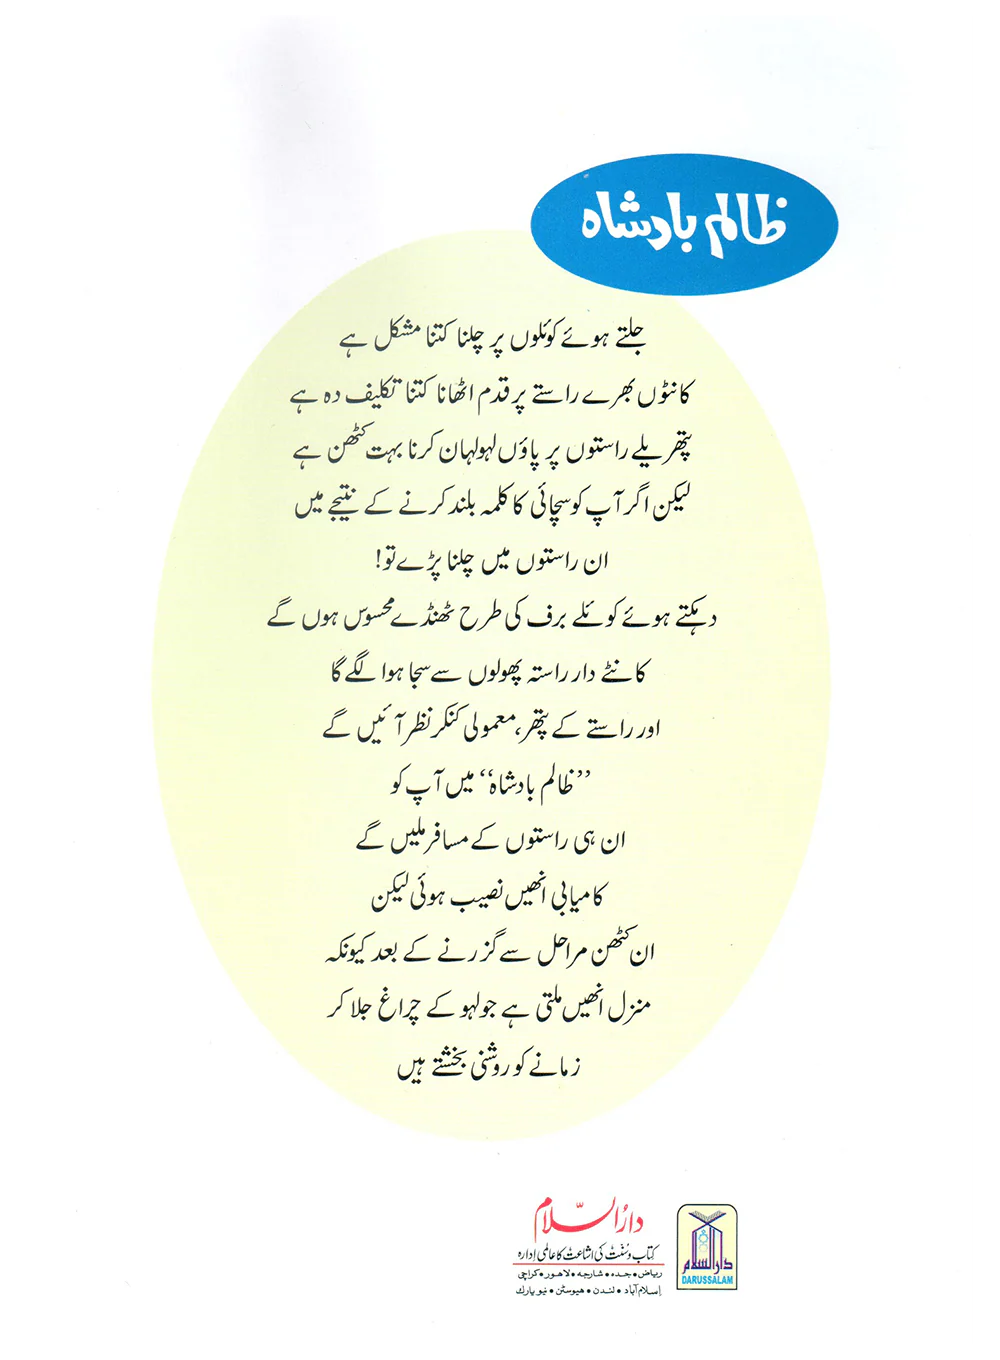 ظالم بادشاہ
جلتے ہوئے کوئلوں پر چلنا کتنا مشکل ہے
کانٹوں بھرے راستے پر قدم اٹھانا کتنا تکلیف دہ ہے
پتھریلے راستوں پر پاؤں لہولہان کرنا بہت کٹھن ہے
لیکن اگر آپ کو سچائی کا کلمہ بلند کرنے کے نتیجے میں
ان راستوں میں چلنا پڑے تو!
دہکتے ہوئے کوئلے برف کی طرح ٹھنڈے محسوس ہوں گے
کانٹے دار راستہ پھولوں سے سجا ہوا لگے گا
اور راستے کے پتھر، معمولی کنکر نظر آئیں گے
”ظالم بادشاہ“ میں آپ کو
ان ہی راستوں کے مسافر ملیں گے
کامیابی انھیں نصیب ہوئی لیکن
ان کٹھن مراحل سے گزرنے کے بعد کیونکہ
منزل انھیں ملتی ہے جو لہو کے چراغ جلا کر
زمانے کو روشنی بخشتے ہیں
دارالسلام
کتاب و سنت کی اشاعت کا عالمی ادارہ
ریاض • جدہ • شارجہ • لاہور • کراچی
اسلام آباد • لندن • ہیوسٹن • نیو یارک
دارالسلام
DARUSSALAM